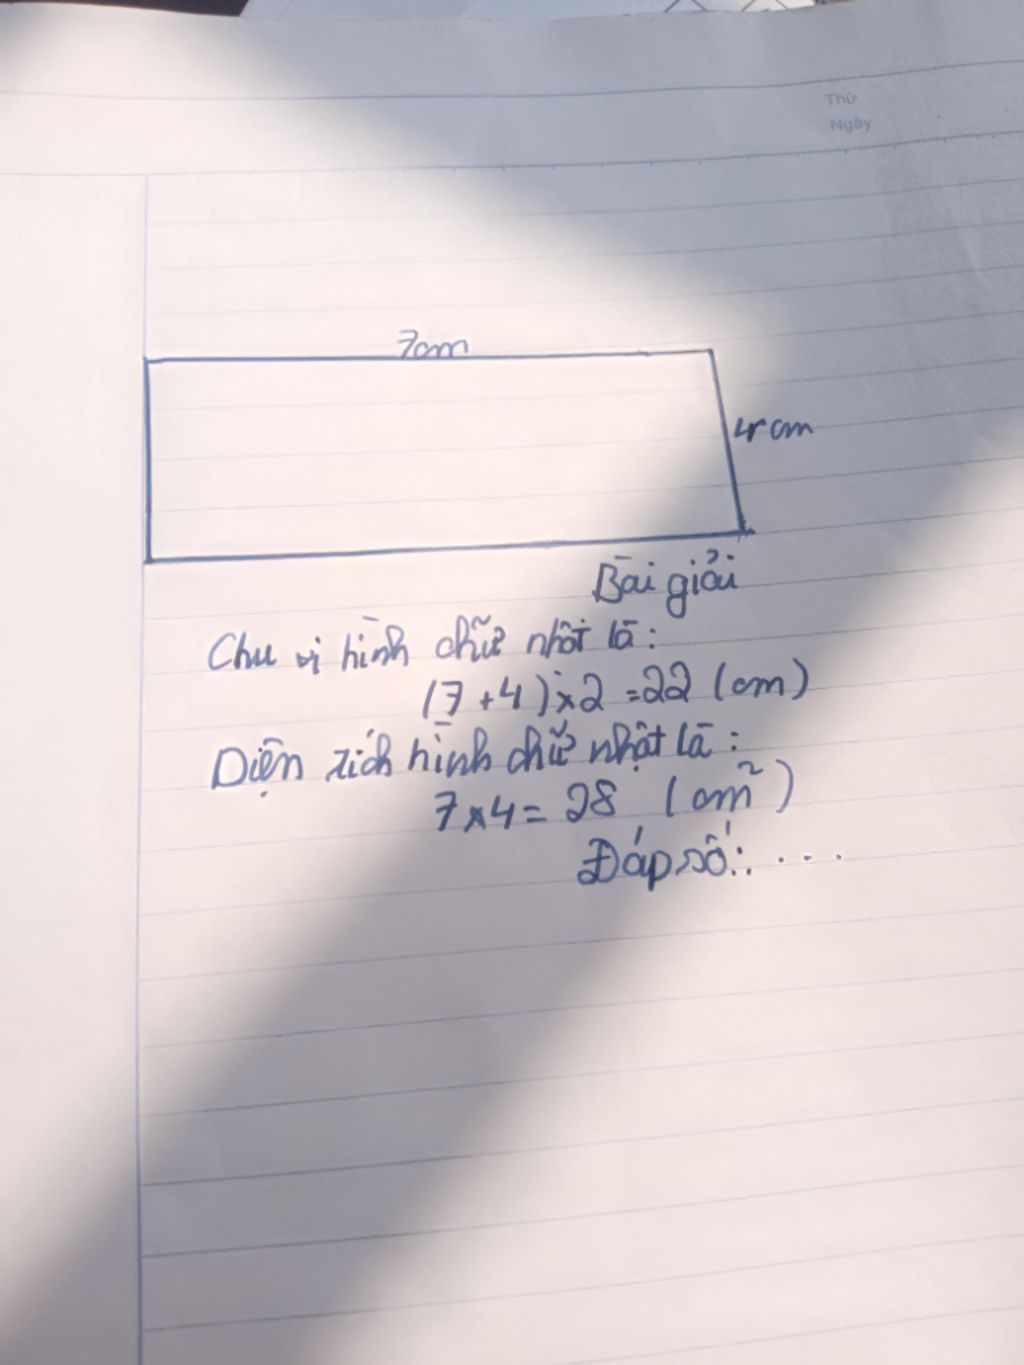 Thứ
Ngày
7cm
4cm
Bài giải
Chu vi hình chữ nhật là:
(7+4)×2=22 (cm)
Diện tích hình chữ nhật là:
7×4=28 (cm²)
Đáp số: ...